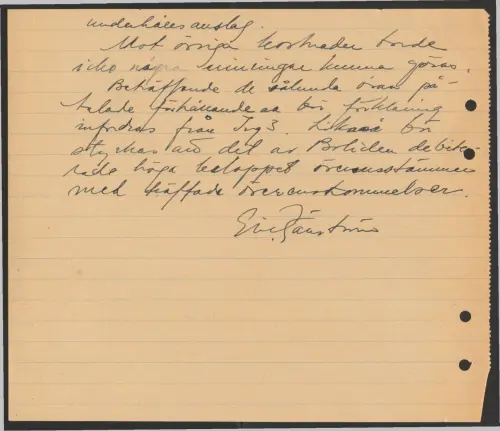 underhållsanslag.
Mot övriga kostnader torde
icke några erinringar kunna göras.
Beträffande de sålunda ovan på-
talade förhållandena bör förklaring
infordras från Ing 3. Likaså bör
styrkas att det av Boliden debite-
rade höga beloppet överensstämmer
med träffade överenskommelser.